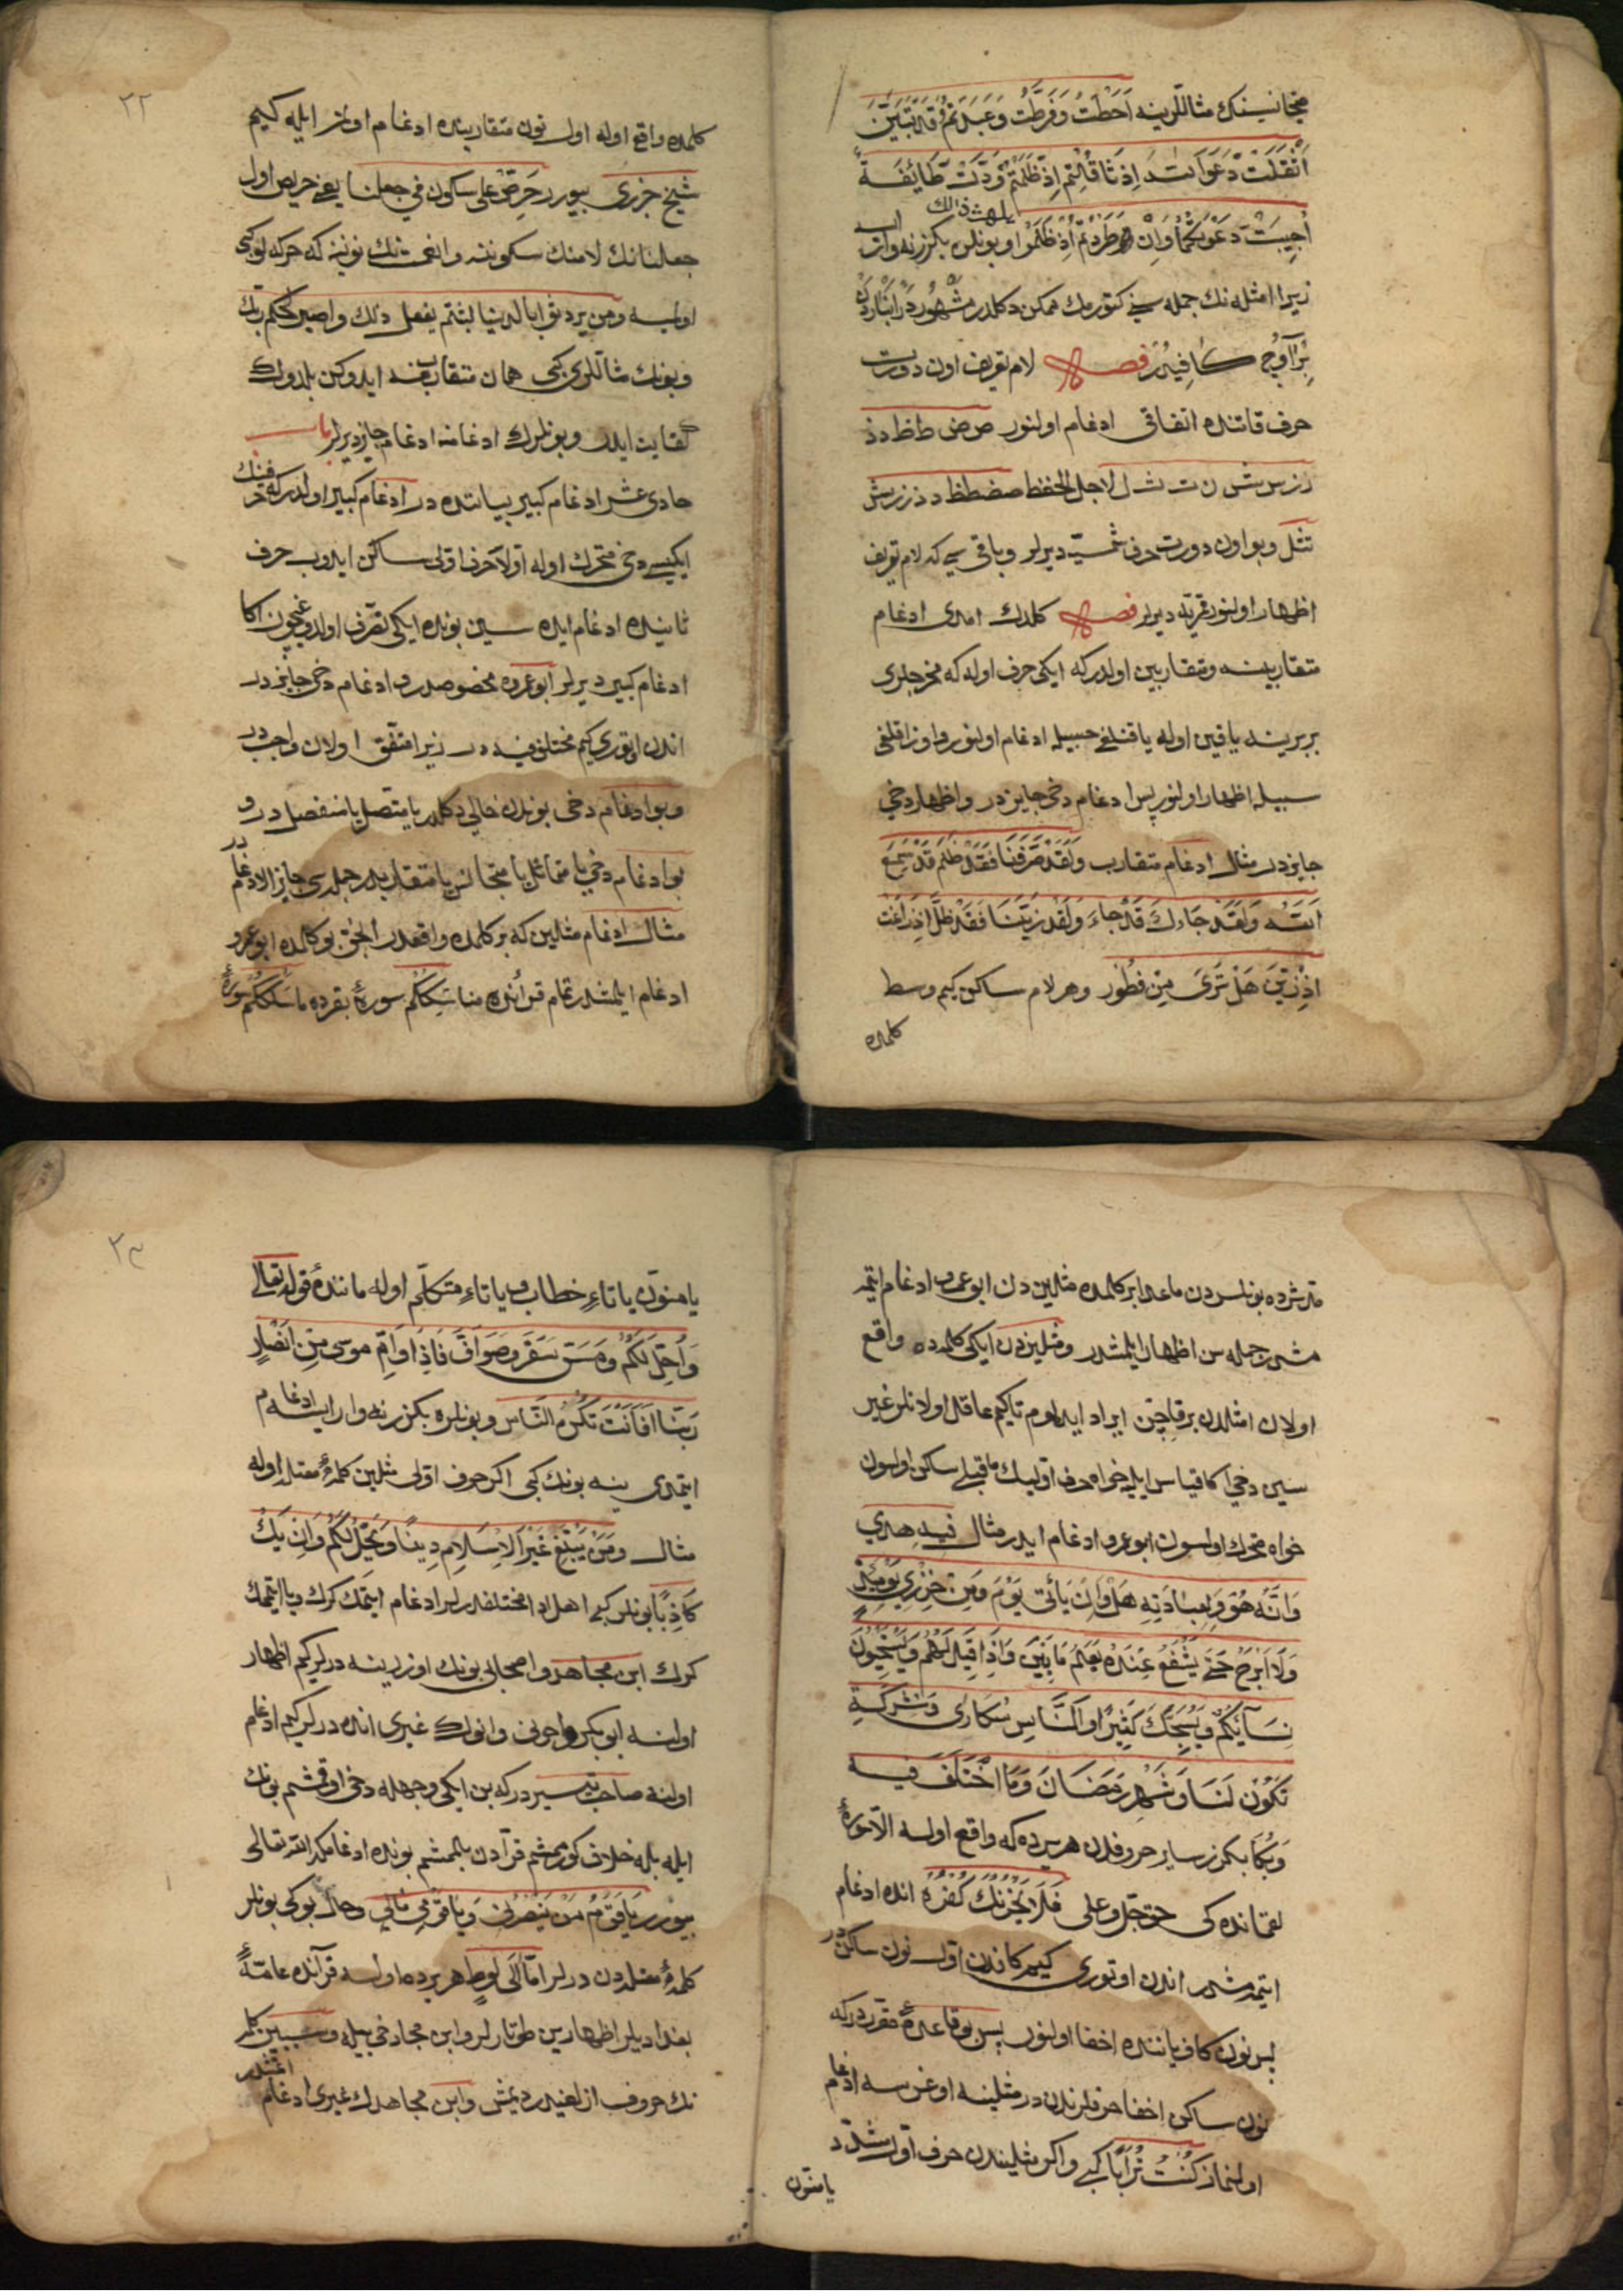 متجانسينك مثاللرينه اَحَطْتُ وَفَرَّطْتُ وَعَبَدْتُمْ قَدْ تَبَيَّنَ
اَثْقَلَتْ دَعَوَا اِذْ ظَلَمْتُمْ وَدَّتْ طَائِفَةٌ
اُجِيبَتْ دَعْوَتُكُمَا وَاِنْ اِذْ ظَلَمُوا و بونلره بكزر نه وار ايسه
يلهث ذلك
زيرا امثله نك جمله سنى كتورمك ممكن دكلدر مشهور در
كافيدر فصل لام تعريف اون دورت
حرف قاتنده اتفاقى ادغام اولنور ص ض ط ظ د ذ
ر ز س ش ن ت ث ل لاجل الحفظ صضطظ دذرزسش
نتثل و بو اون دورت حرفه شمسيّه ديرلر و باقى سى كه لام تعريف
اظهار اولنور قمريّه ديرلر فصل كلدك امدى ادغام
متقاربينه و متقاربين اولدر كه ايكى حرف اوله كه مخرجلرى
بربرينه ياقين اوله ياقنلغى حسبيله ادغام اولنور و اوزاقلغى
سبيله اظهار اولنور پس ادغام دخى جايز در و اظهار دخى
جايزدر مثال ادغام متقارب وَلَقَدْ صَرَّفْنَا فَقَدْ ظَلَمَ قَدْ سَمِعَ
اللّه وَلَقَدْ جَاءَكَ قَدْ جَاءَ وَلَقَدْ زَيَّنَّا فَقَدْ ضَلَّ اِذْ زَاغَتْ
اِذْ زَيَّنَ هَلْ تَرَى مِنْ فُطُور و هر لام ساكن كيم وسط
كلمده
٢٢
كلمده واقع اوله اول نون متقاربنده ادغام اولنمز ايله كيم
شيخ جزرى بيورر حرص على سكون فى جعلنا يعنى حريص اول
جعلنانك لامنك سكوننه و انعمتنك نوننه كه حركه لو كبى
اولسه ومن يرد ثواب الدنيا لبثتم يفعل ذلك واصبر لحكم ربك
و بونك مثاللرى كبى همان متقاربنه ايدوكن بلدوك
كفايت ايدر و بونلرك ادغامنه ادغام جايز ديرلر باب
حادى عشر ادغام كبير بياننده در ادغام كبير اولدر كه حرفنك
ايكيسى دخى متحرك اوله اولا حرف اولى ساكن ايدوب حرف
ثانيده ادغام ايده سين بونده ايكى تصرف اولدوغيچون اكا
ادغام كبير ديرلر ابو عمروه مخصوصدر و ادغام دخى جايزدر
اندن اوتورى كيم مختلف فيه در زيرا متفق اولان واجبدر
و بو ادغام دخى بوندن خالى دكلدر يا متصل يا منفصل در و
بو ادغام دخى يا متماثل يا متجانس يا متقاربدر جمله سى جايز الادغامدر
مثال ادغام مثلين كه بر كلمده واقعدر ايكى كلمده ابو عمرو
ادغام ايلمشدر تمام قرآنده مناسككم سورۀ بقرده ما سلككم سورۀ
مدثرده بونلردن ماعدا بر كلمده مثلين دن ابو عمرو ادغام ايتمه
مشدر جمله سن اظهار ايلمشدر و مثليندن ايكى كلمده واقع
اولان امثلدن برقاچن ايراد ايدلوم تا كيم عاقل اولانلر غير
سين دخى اكا قياس ايليه خواه حرف اولينك ماقبلى ساكن اولسون
خواه متحرك اولسون ابو عمرو ادغام ايدر مثال فيه هدى
وَاَنَّهُ هُوَ وَلِعِبَادَتِهِ هَلْ وَاَنْ يَأْتِىَ يَوْمٌ وَمِنْ خِزْىِ يَوْمِئِذٍ
وَلَا اَبْرَحُ حَتَّى يَشْفَعُ عِنْدَهُ يَعْلَمُ مَا بَيْنَ وَاِذَا قِيلَ لَهُمْ وَيَسْتَحْيُونَ
نِسَاءَكُمْ وَنُسَبِّحَكَ كَثِيرًا وَالنَّاسَ سُكَارَى وَ
تَكُونُ لَنَا وَشَهْرُ رَمَضَانَ وَمَا اخْتَلَفَ فِيهِ
بكزر ساير حروفدن هر يرده كه واقع اولسه الا سورۀ
لقمانده كى حق جل و على فَلَا يَحْزُنْكَ كُفْرُهُ انده ادغام
ايتمه مشدر اندن اوتورى كيم كافدن اول نون ساكندر
پس نون كاف ياننده اخفا اولنور پس بو قاعده مقرر در كه
نون ساكن اخفا حرفلرندن در مثلينه اوغرسه ادغام
اولنماز كُنْتُ تُرَابًا كبى و اكر مثليندن حرف اول مشدّد
يا منون
٢٣
يا منوّن يا تاءِ خطاب و يا تاءِ متكلّم اوله مانندۀ قوله تعالى
وَاُحِلَّ لَكُمْ وَمَسَّ سَقَرَ وَصَوَافَّ فَاِذَا وَاُمِّ موسى مِنْ اَنْصَارٍ
رَبَّنَا اَفَاَنْتَ تُكْرِهُ النَّاسَ و بونلره بكزر نه وار ايسه ادغام
ايتمدى ينه بونك كبى اكر حرف اولى مثلين كلمۀ معتلدن اوله
مثال وَمَنْ يَبْتَغِ غَيْرَ الْاِسْلَامِ دِينًا وَيَخْلُ لَكُمْ وَاِنْ يَكُ
كَاذِبًا بونلر كبى اهل ادا مختلفدرلر ادغام ايتمك كرك يا ايتممك
كرك ابن مجاهد و اصحابى بونك اوزرينه درلر كيم اظهار
اولنه ابو بكر و انوك غيرى انده درلر كيم ادغام
اولنه صاحب تيسير در كه بن ايكى وجهله دخى اوقمشم بونك
ايله بله خلاف كورمشم قرآدن بلمشم بونده ادغامكه اللّه تعالى
بيورر يَاقَوْمِ مَنْ يَنْصُرُنِى وَيَاقَوْمِ مَالِى و حال بو كى بونلر
كلمۀ معتلدن درلر امّا آلَ لُوطٍ هر يرده اولسه قرآنده عامّۀ
بغداديلر اظهارين طوتارلر و ابن مجاهد دخى بيله و سببن كلمه
نك حروف ازلغيدر ديمش و ابن مجاهدك غيرى ادغام
اتمشدر